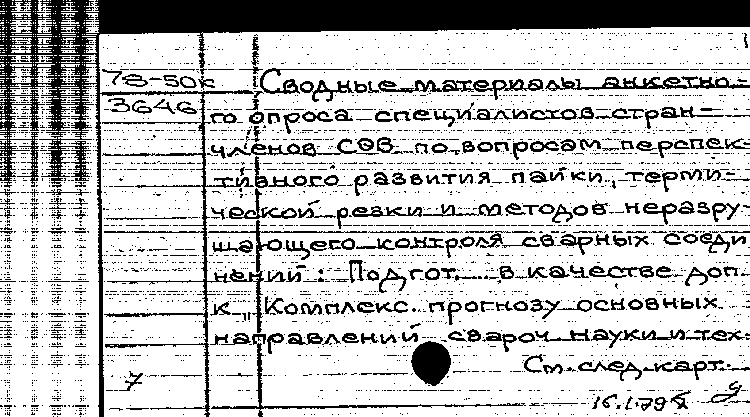 78-50к Сводные материалы анкетно-
3646 го опроса специалистов стран-
членов СЭВ по вопросам перспек-
тивного развития пайки, терми-
ческой резки и методов неразру-
шающего контроля сварных соеди
нений: Подгот. в качестве доп.
к „Комплекс. прогнозу основных
направлений свароч. науки и тех.
См. след. карт.
7
16.1.79